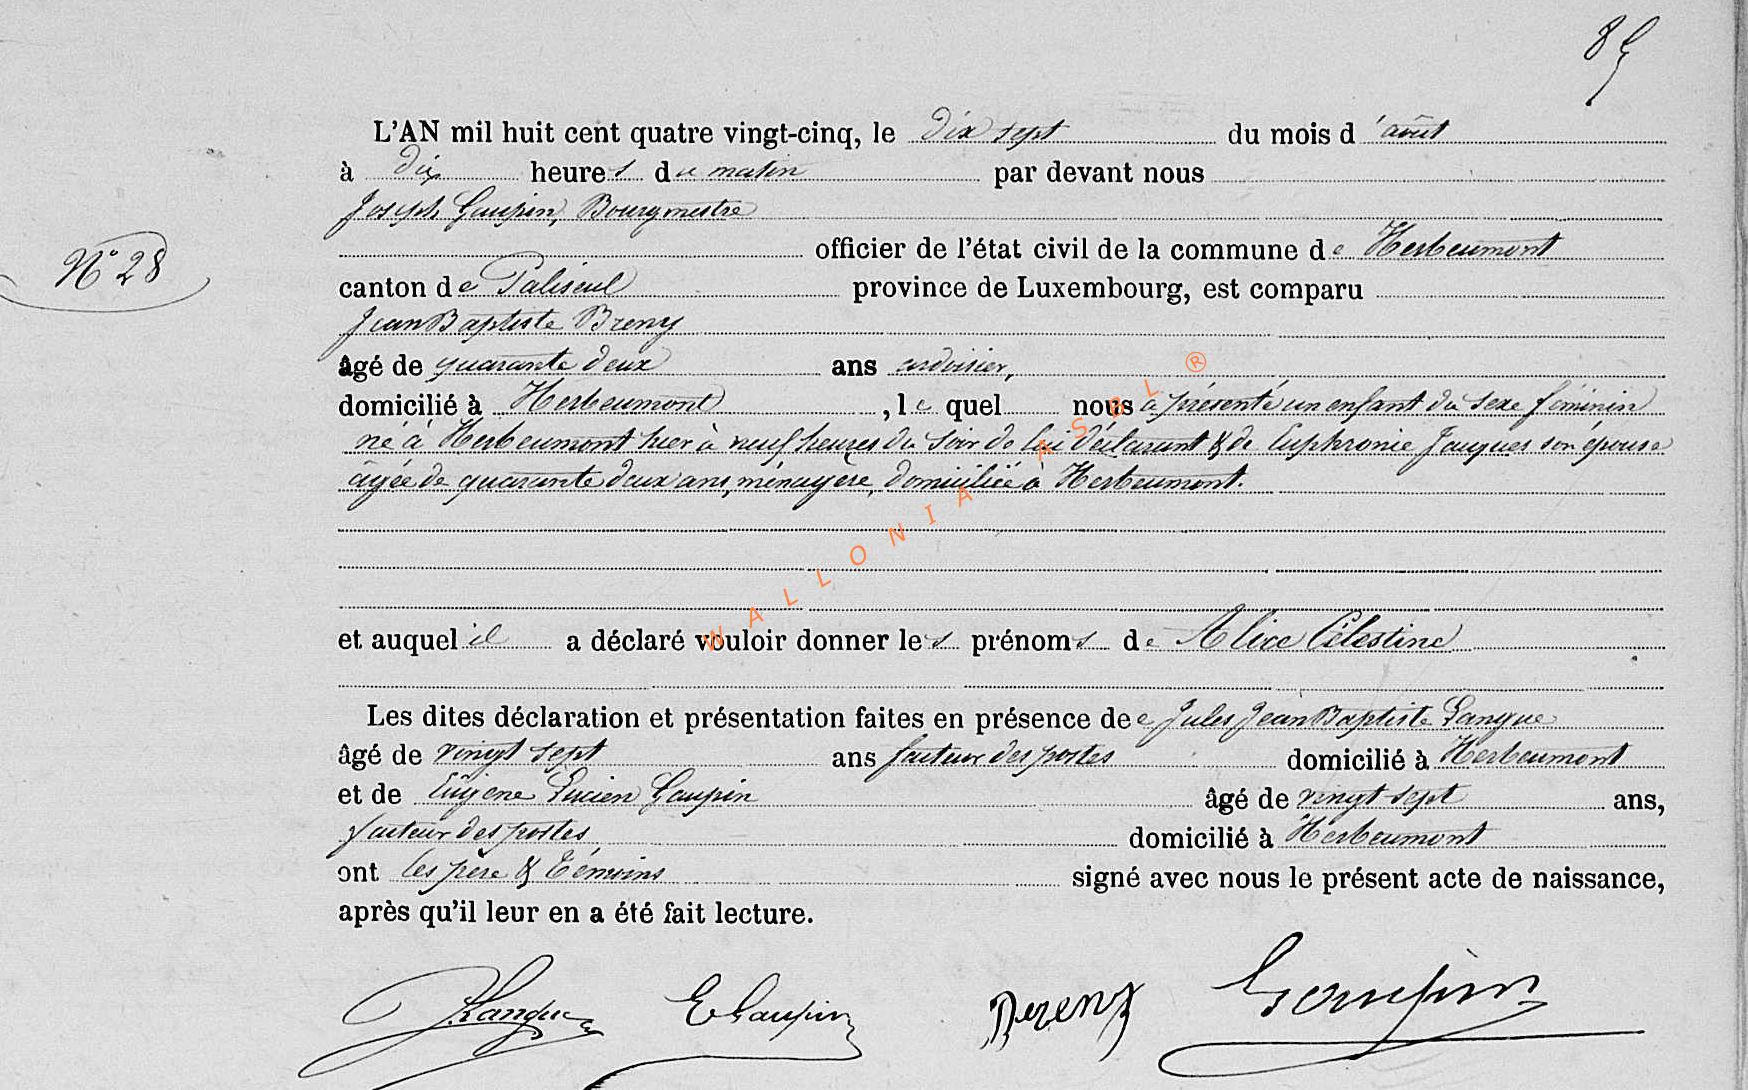 85
L'AN mil huit cent quatre vingt-cinq, le dix sept du mois d'août
à dix heures du matin par devant nous
Joseph Gaupin, Bourgmestre
officier de l'état civil de la commune de Herbeumont
N° 28
canton de Paliseul province de Luxembourg, est comparu
Jean Baptiste Breny
âgé de quarante deux ans ardoisier,
domicilié à Herbeumont, lequel nous a présenté un enfant du sexe féminin
né à Herbeumont hier à neuf heures du soir de lui déclarant & de Euphronie Jauques son épouse
âgée de quarante deux ans, ménagère, domiciliée à Herbeumont.
et auquel il a déclaré vouloir donner les prénoms de Alice Célestine
Les dites déclaration et présentation faites en présence de e Jules Jean Baptiste Langue
âgé de vingt sept ans facteur des postes domicilié à Herbeumont
et de Eugène Lucien Gaupin âgé de vingt sept ans,
facteur des postes, domicilié à Herbeumont
ont les père & témoins signé avec nous le présent acte de naissance,
après qu'il leur en a été fait lecture.
JLangue EGaupin Gaupin
WALLONIA ASBL ®